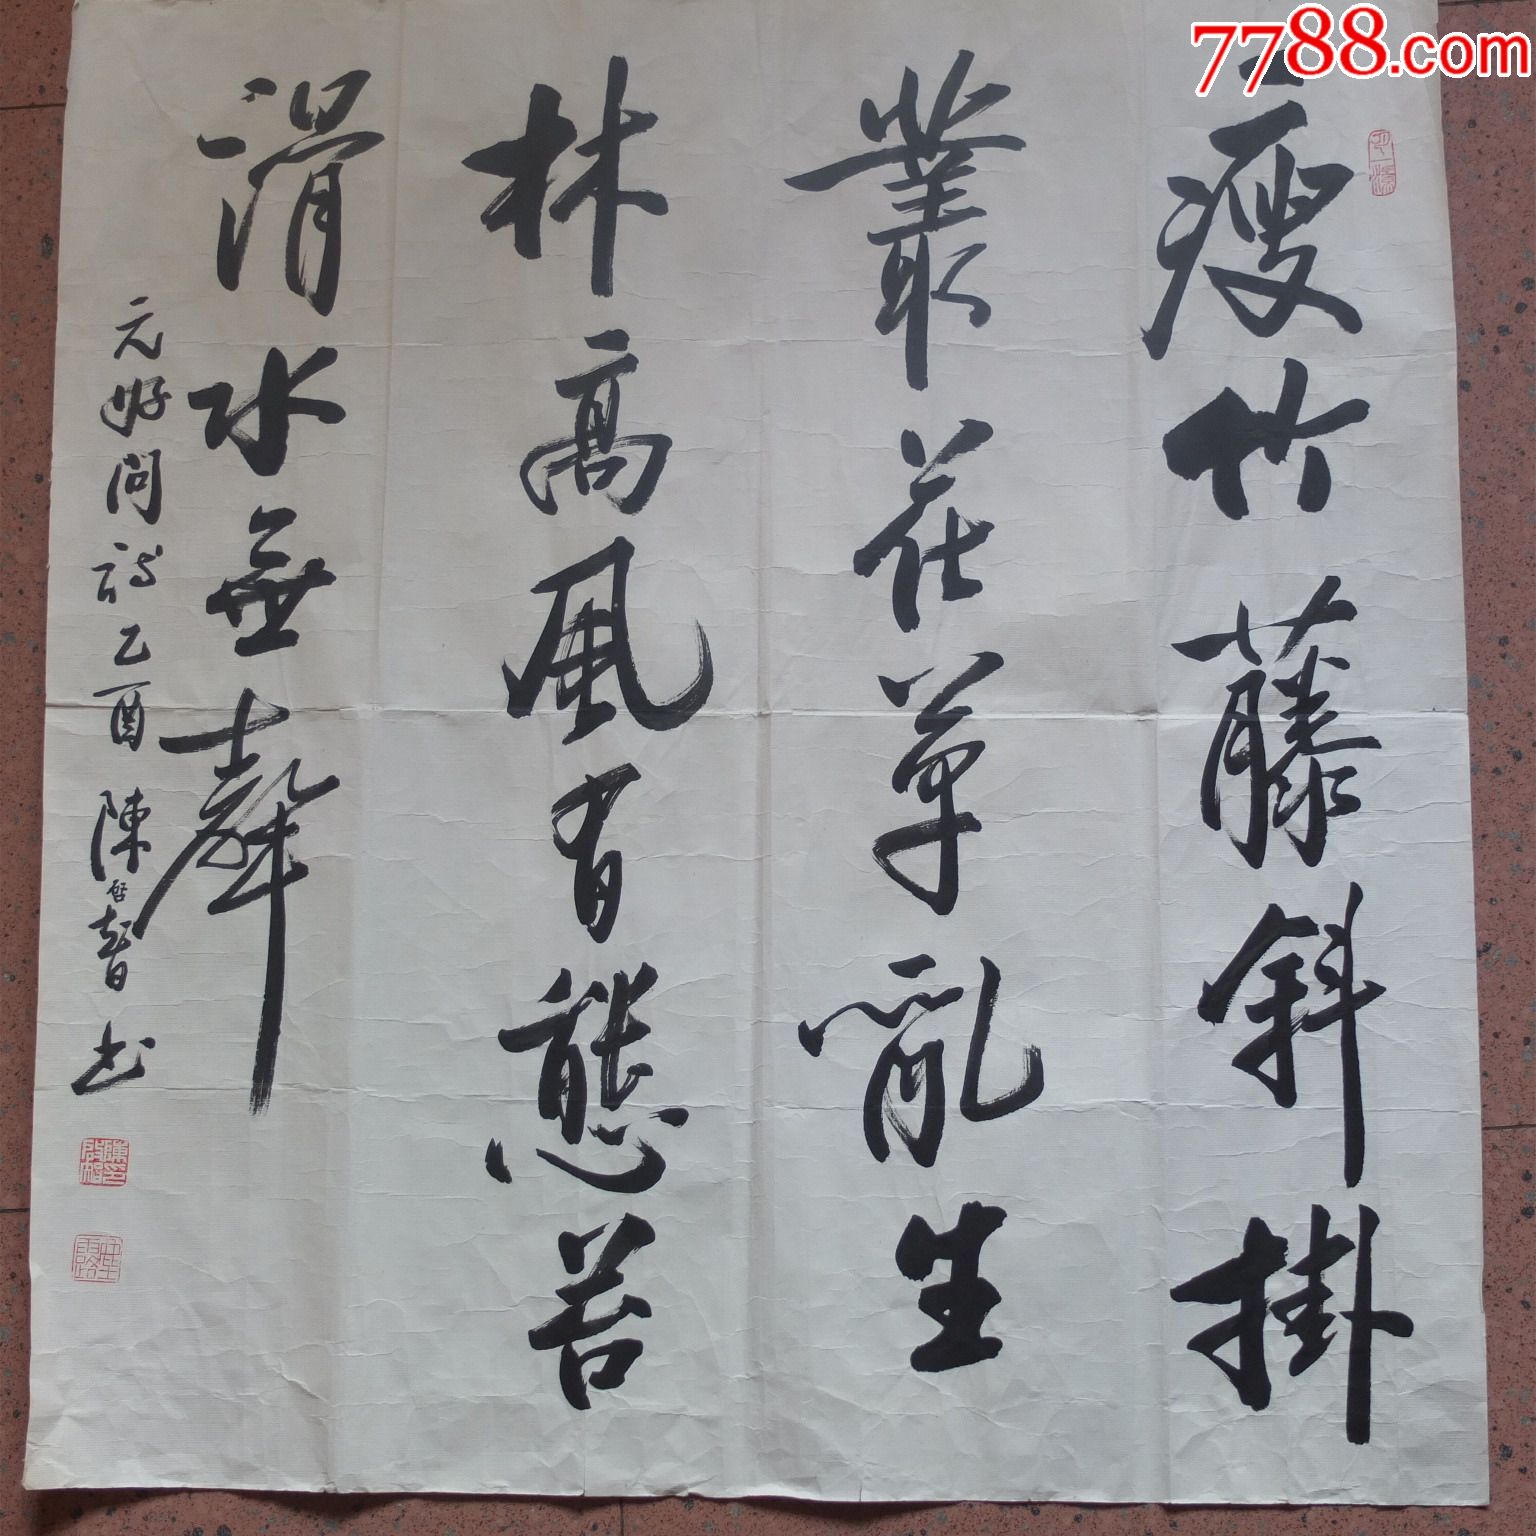 7788.com
瘦竹藤斜掛
叢花草亂生
林高風有態苔
滑水無聲
元好問詩乙酉陳啓智书